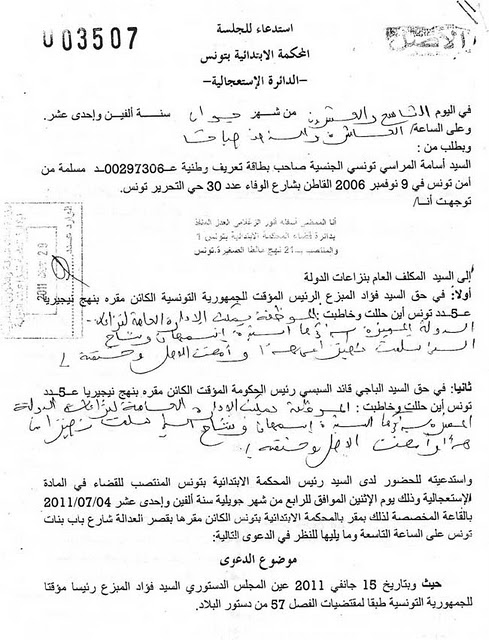 003507
الأصل
استدعاء للجلسة
المحكمة الابتدائية بتونس
-الدائرة الإستعجالية-
في اليوم التاسع والعشرين من شهر جوان سنة ألفين وإحدى عشر.
وعلى الساعة/ العاشرة و صباحا
وبطلب من :
السيد أسامة المراسي تونسي الجنسية صاحب بطاقة تعريف وطنية عـ00297306ـدد مسلمة من
أمن تونس في 9 نوفمبر 2006 القاطن بشارع الوفاء عدد 30 حي التحرير تونس.
توجهت أنـا/
أنا الممضي أسفله أنور الزغلامي العدل المنفذ
بدائرة قضاء المحكمة الابتدائية بتونس 1
والمنتصب بـ21 نهج مالطا الصغيرة.تونس
2011
29
إلى السيد المكلف العام بنزاعات الدولة
أولا: في حق السيد فؤاد المبزع الرئيس المؤقت للجمهورية التونسية الكائن مقره بنهج نيجيريا
عـ5ـدد تونس أين حللت وخاطبت : الموظفة بمكتب الإدارة العامة لنزاعات
الدولة
وأمضت الأصل وختمته /
ثانيا: في حق السيد الباجي قائد السبسي رئيس الحكومة المؤقت الكائن مقره بنهج نيجيريا عـ5ـدد
تونس أين حللت وخاطبت : الموظفة بمكتب الإدارة العامة لنزاعات الدولة
وأمضت الأصل وختمته /
واستدعيته للحضور لدى السيد رئيس المحكمة الابتدائية بتونس المنتصب للقضاء في المادة
الإستعجالية وذلك يوم الإثنين الموافق للرابع من شهر جويلية سنة ألفين وإحدى عشر 2011/07/04
بالقاعة المخصصة لذلك بمقر بالمحكمة الابتدائية بتونس الكائن مقرها بقصر العدالة شارع باب بنات
تونس على الساعة التاسعة وما يليها للنظر في الدعوى التالية:
موضوع الدعوى
حيث وبتاريخ 15 جانفي 2011 عين المجلس الدستوري السيد فؤاد المبزع رئيسا مؤقتا
للجمهورية التونسية طبقا لمقتضيات الفصل 57 من دستور البلاد.